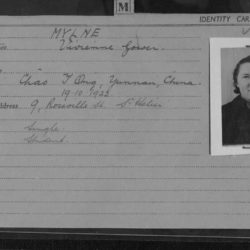 M
IDENTITY CAR
MYLNE
Vivienne Gower.
Chao T'Ong, Yunnan, China.
19.10.1925.
9, Roseville St. St. Helier
Single
Student.